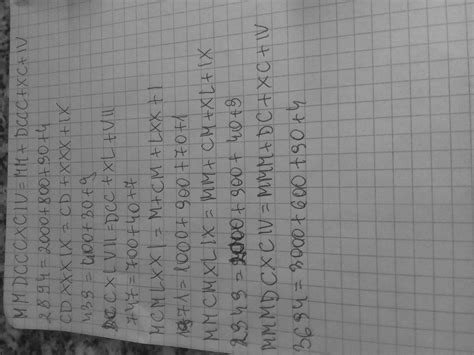 MMDCCCXCIV = MM + DCCC + XC + IV
2894 = 2000 + 800 + 90 + 4
CDXXXIX = CD + XXX + IX
439 = 400 + 30 + 9
DCCXLVII = DCC + XL + VII
747 = 700 + 40 + 7
MCMLXXI = M + CM + LXX + I
1971 = 1000 + 900 + 70 + 1
MMCMXLIX = MM + CM + XL + IX
2949 = 2000 + 900 + 40 + 9
MMMDCXCIV = MMM + DC + XC + IV
3694 = 3000 + 600 + 90 + 4